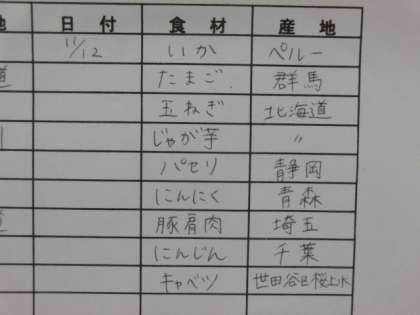 地 日付 食材 産地
11/12 いか ペルー
道 たまご 群馬
玉ねぎ 北海道
じゃが芋 〃
パセリ 静岡
にんにく 青森
豚肩肉 埼玉
にんじん 千葉
キャベツ 世田谷区桜上水